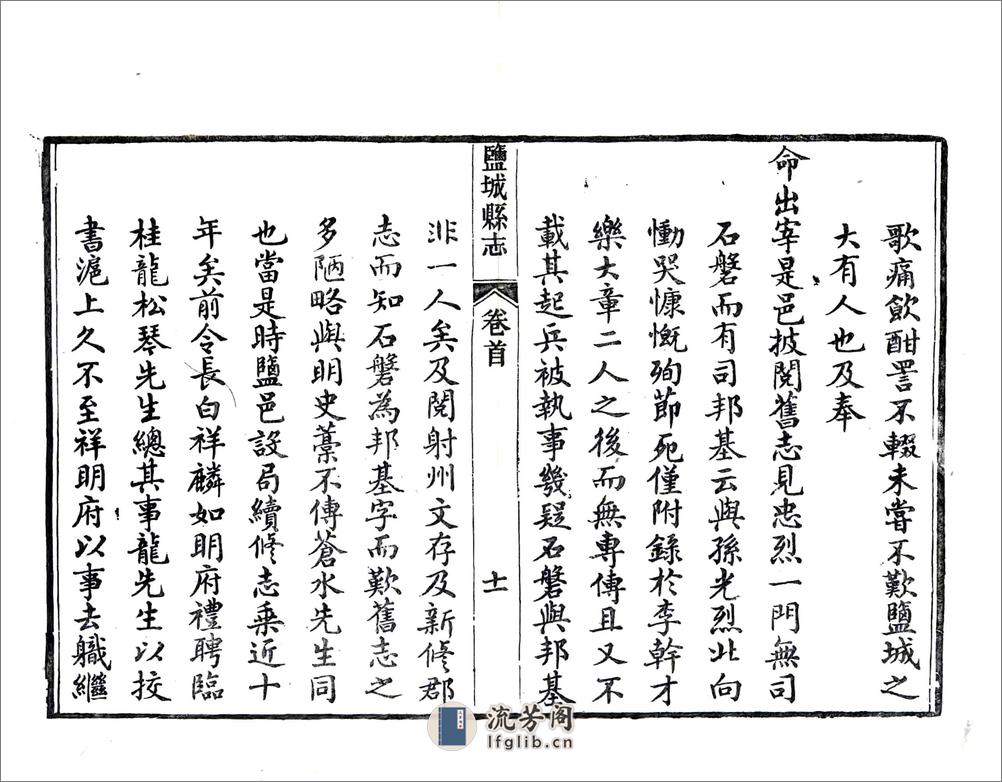 歌痛飲酣詈不輟未嘗不歎鹽城之
大有人也及奉
命出宰是邑披閱舊志見忠烈一門無司
石磐而有司邦基云與孫光烈北向
慟哭慷慨殉節死僅附錄於李幹才
樂大章二人之後而無專傳且又不
載其起兵被執事幾疑石磐與邦基
鹽城縣志
卷首
十一
非一人矣及閱射州文存及新修郡
志而知石磐為邦基字而歎舊志之
多陋略與明史藁不傳蒼水先生同
也當是時鹽邑設局續修志乘近十
年矣前令長白祥麟如明府禮聘臨
桂龍松琴先生總其事龍先生以挍
書滬上久不至祥明府以事去職繼
流芳阁
lfglib.cn